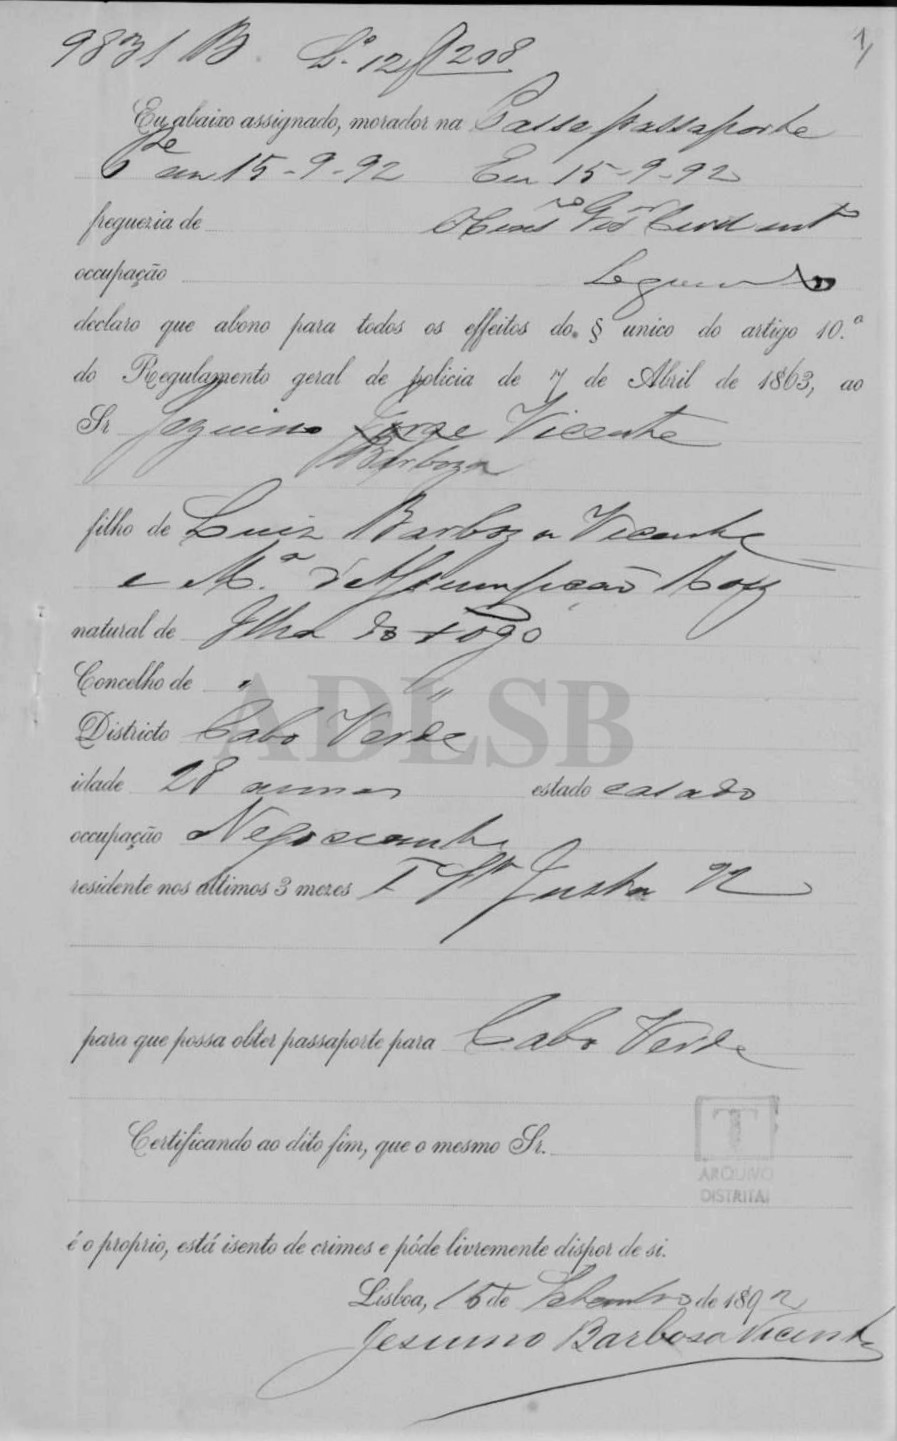 9831 B. L.º 12 f 208
1
Eu abaixo assignado, morador na Passa passaporte
em 15-9-92 Em 15-9-92
freguezia de
occupação
declaro que abono para todos os effeitos do § unico do artigo 10.º
do Regulamento geral de policia de 7 de Abril de 1863, ao
Sr Jezuino Jorge Vicente
Barboza
filho de Luiz Barboza Vicente
e M.ª
natural de Ilha do Fogo
Concelho de " "
Districto Cabo Verde
idade 28 annos estado casado
occupação Negociante
residente nos ultimos 3 mezes T St.ª Justa 22
para que possa obter passaporte para Cabo Verde
Certificando ao dito fim, que o mesmo Sr.
é o proprio, está isento de crimes e póde livremente dispor de si.
Lisboa, 15 de Setembro de 1892
Jesuino Barbosa Vicente
ADLSB
T
ARQUIVO
DISTRITAL